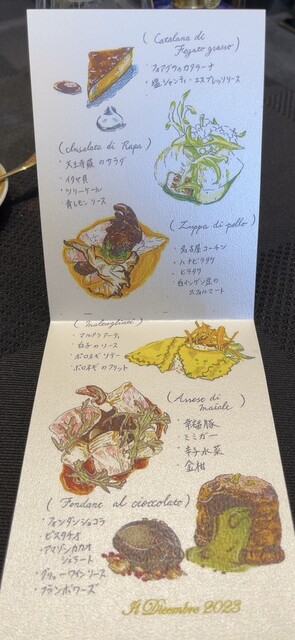 ( Catalana di
Fegato grasso )
・フォアグラのカタラーナ
・塩シャンティ・エスプレッソソース
( Insalata di Rapa )
・天王寺蕪のサラダ
・イタヤ貝
・ツリーケール
・青レモンソース
( Zuppa di pollo )
・名古屋コーチン
・ハナビラタケ
・ヒラタケ
・白インゲン豆の
スフォルマート
( Maltagliati )
・マルタリアーティ
・白子のソース
・ポロネギソテー
・ポロネギのフリット
( Arrosto di
maiale )
・ミミガー
・辛子水菜
・金柑
( Fondant al cioccolato )
・フォンダンショコラ
・ピスタチオ
・アマゾンカカオ
ジェラート
・グリューワインソース
・フランボワーズ
Il Dicembre 2023